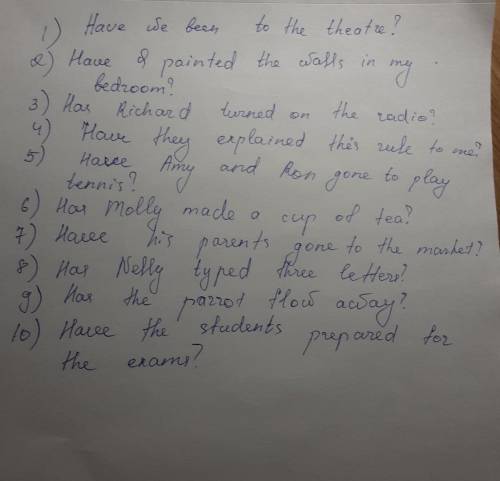 1) Have we been to the theatre?
2) Have I painted the walls in my
bedroom?
3) Has Richard turned on the radio?
4) Have they explained this rule to me?
5) Have Amy and Ron gone to play
tennis?
6) Has Molly made a cup of tea?
7) Have his parents gone to the market?
8) Has Nelly typed three letters?
9) Has the parrot flow away?
10) Have the students prepared for
the exams?